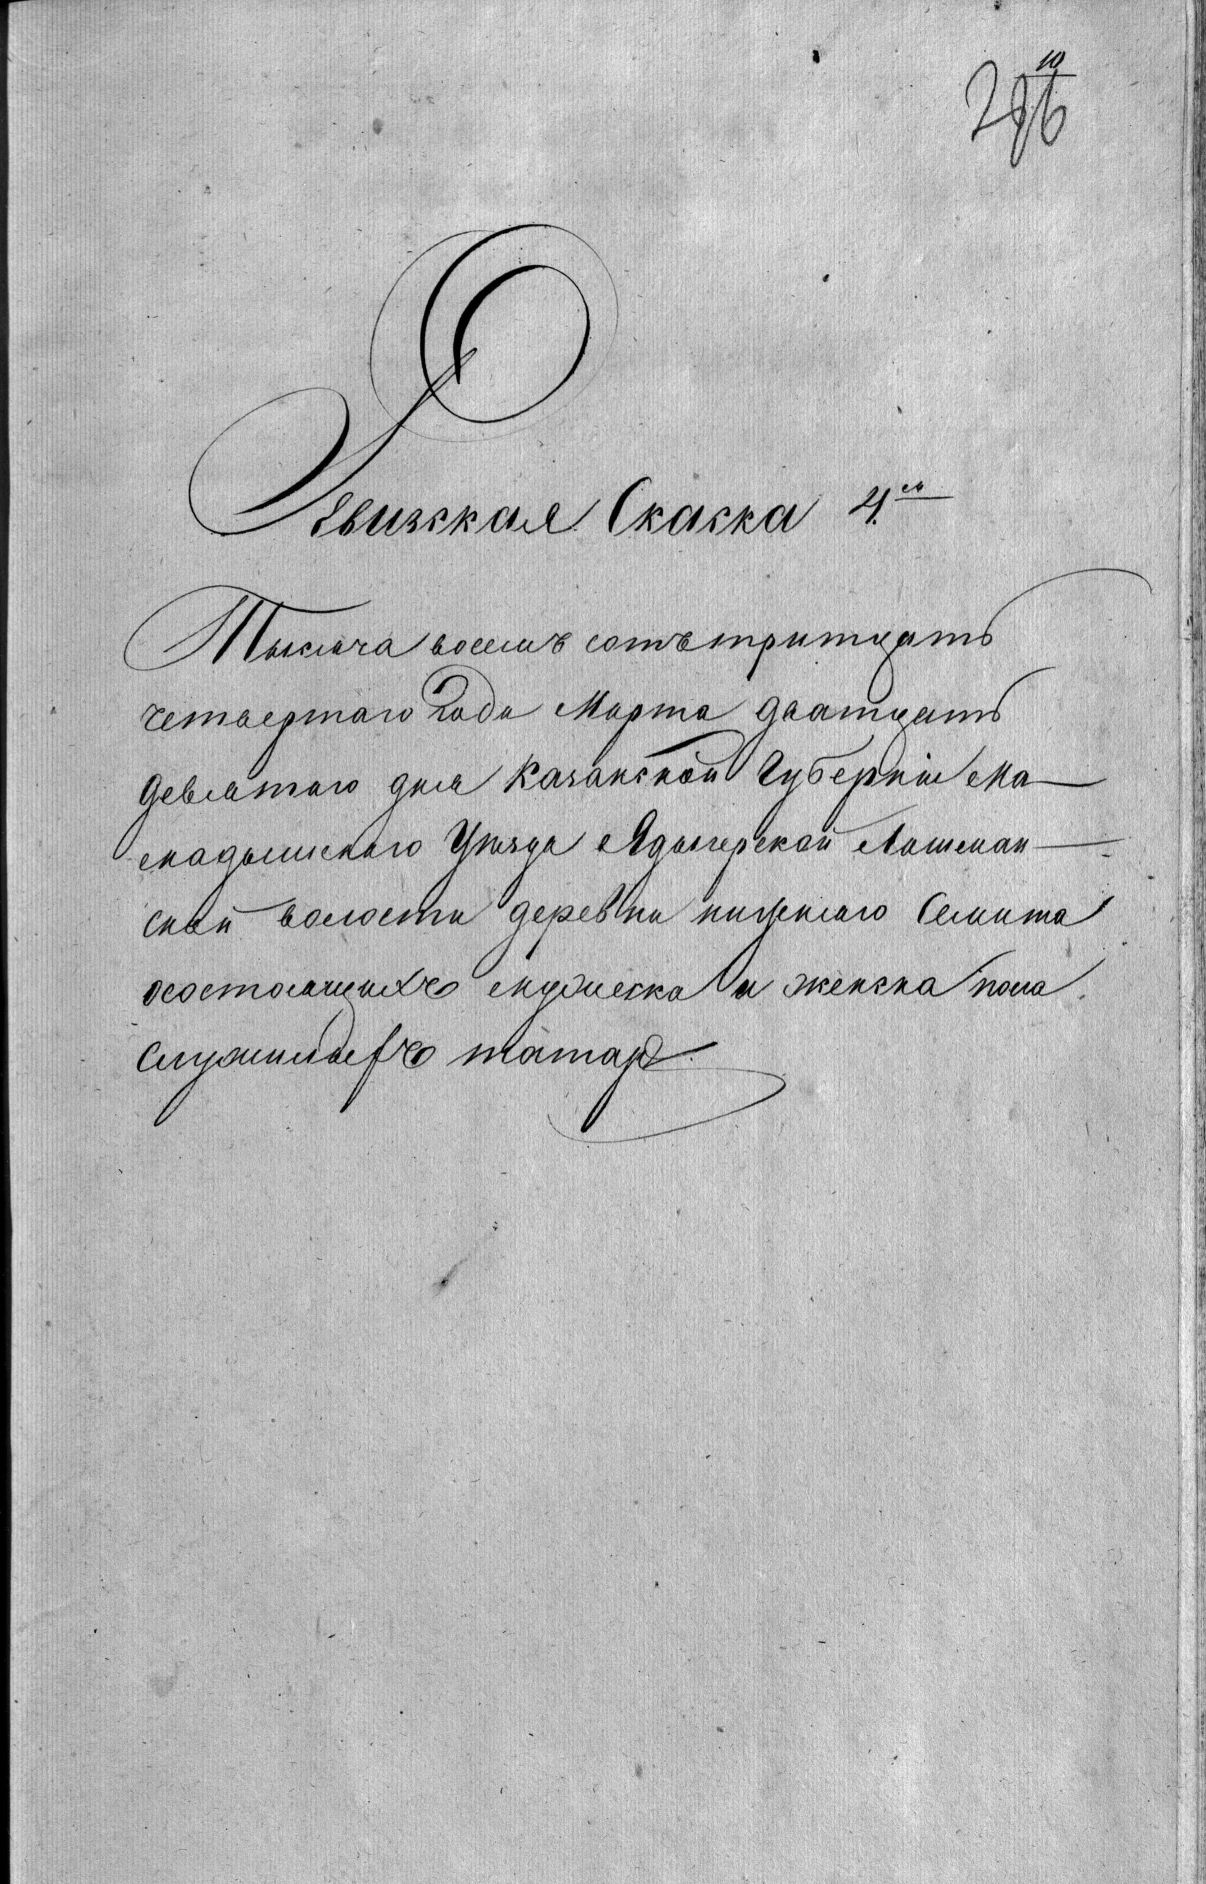 10
286
Ревизская Скаска 4.ая
Тысяча восемь сотъ тритцать
четвертаго Года Марта дватцать
девятаго дня Казанской Губерніи Ма-
мадышскаго Уѣзда Ядыгерской Лашман-
ской волости деревни нижнего Семита
осостоящихъ мужеска и женска пола
служилыхъ татаръ